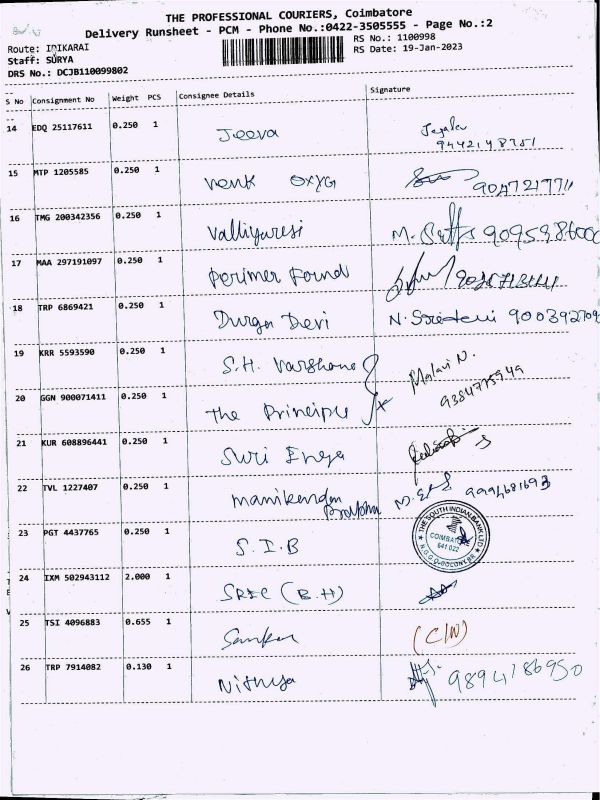 THE PROFESSIONAL COURIERS, Coimbatore
Delivery Runsheet - PCM - Phone No.:0422-3505555 - Page No.:2
Route: IDIKARAI
RS No.: 1100998
Staff: SURYA
RS Date: 19-Jan-2023
DRS No.: DCJB110099802
S No Consignment No Weight PCS Consignee Details Signature
14 EDQ 25117611 0.250 1 Jeeva
15 MTP 1205585 0.250 1 venk oxyg
16 TMG 200342356 0.250 1 Valliyuresi
17 MAA 297191097 0.250 1 Perimer Found
18 TRP 6869421 0.250 1 Durga Devi
19 KRR 5593590 0.250 1 S.H. Varshane
20 GGN 900071411 0.250 1 The Principle 9384775949
21 KUR 608896441 0.250 1 Suri Enga
22 TVL 1227407 0.250 1 manikendan 9994681693
Prabhu
23 PGT 4437765 0.250 1 S.I.B THE SOUTH INDIAN BANK LTD
COIMBATORE
641 022
24 IXM 502943112 2.000 1 SREC (B.H)
25 TSI 4096883 0.655 1 Sankar
26 TRP 7914082 0.130 1 Nithya 9894186950